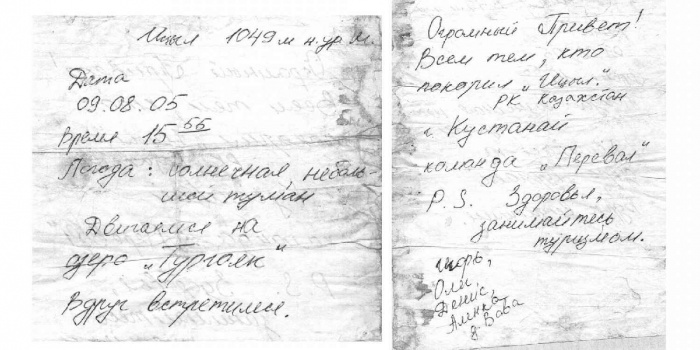 Ицыл 1049 м н.ур.м.
Дата
09.08.05
Время 15 55
Погода: солнечная, неболь-
шой туман
Двигаемся на
озеро „Тургояк“
Вдруг встретимся.
Огромный Привет!
Всем тем, кто
покорил „Ицыл“.
РК Казахстан
г. Кустанай
команда „Перевал“
P.S. Здоровья,
занимайтесь
туризмом.
Игорь,
Оля,
Денис,
Алинка,
д. Вова